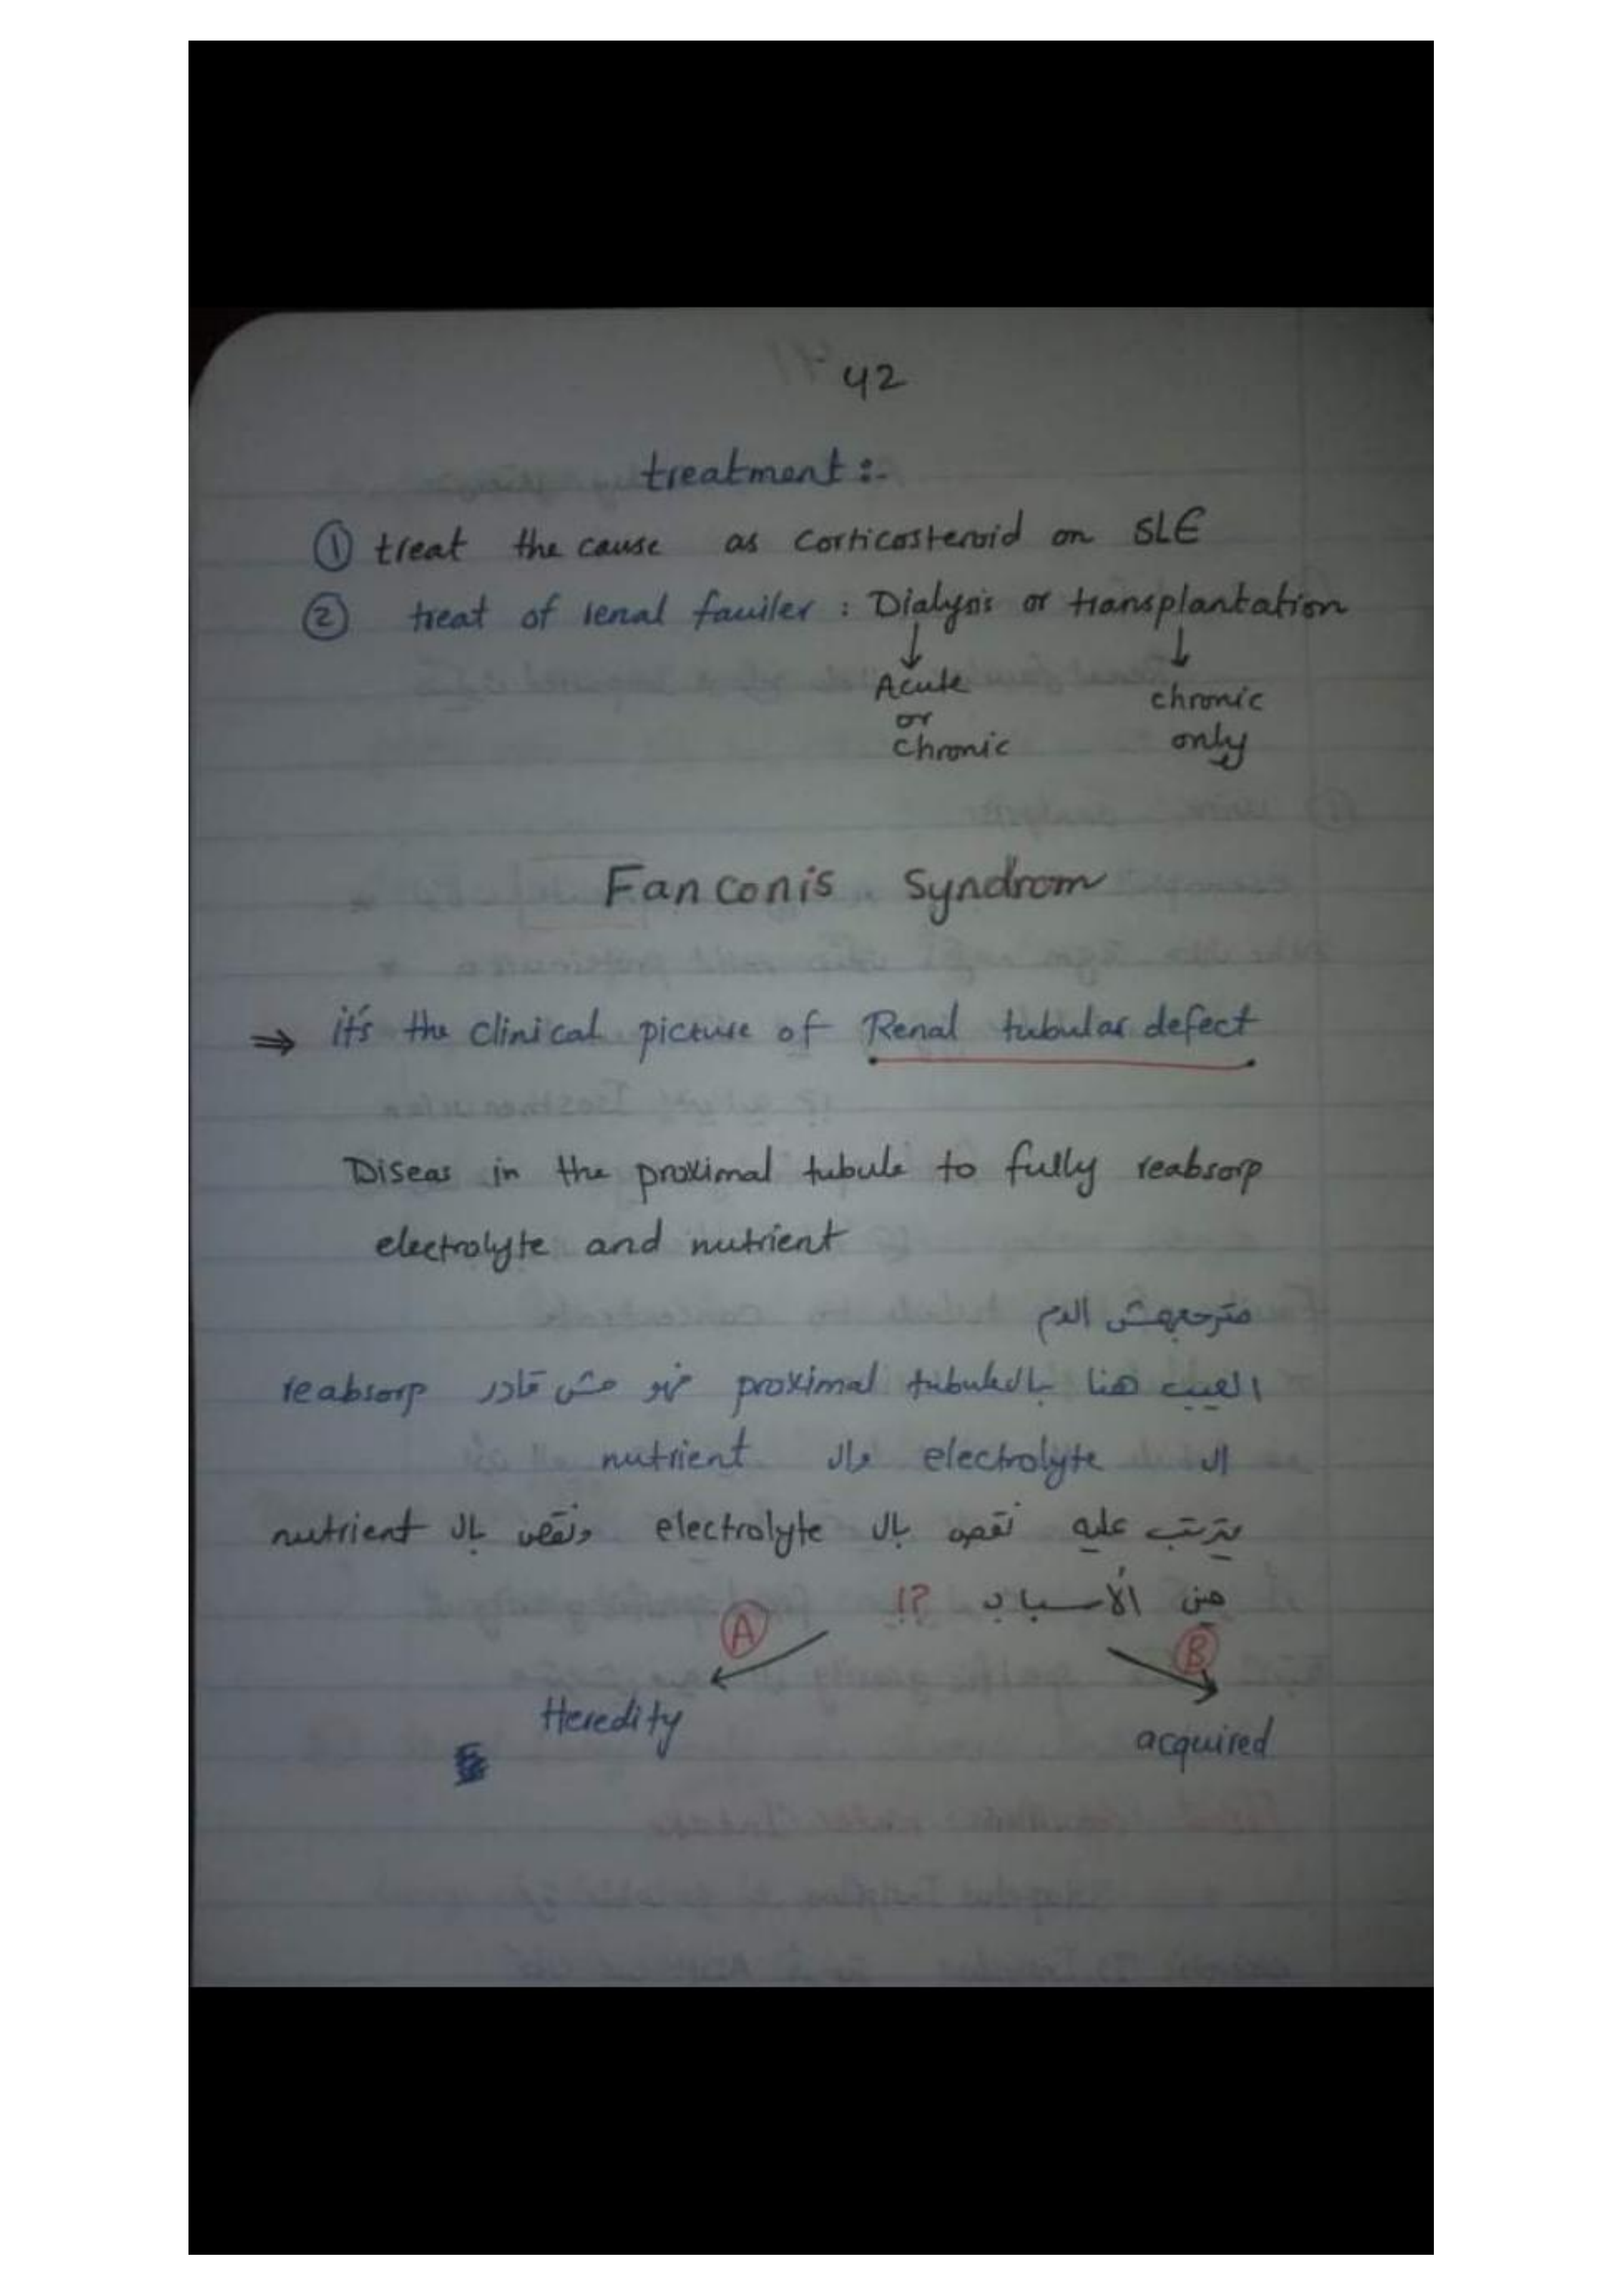 42
treatment :-
① treat the cause as corticosteroid on SLE
② treat of renal fauiler : Dialysis or transplantation
↓ ↓
Acute or chronic
chronic only
Fanconis Syndrom
⇒ it's the clinical picture of Renal tubular defect
Diseas in the proximal tubule to fully reabsorp
electrolyte and nutrient
مترجعهش الدم
العيب هنا بال tubule proximal فهو مش قادر reabsorp
ال electrolyte وال nutrient
يترتب عليه نقص بال electrolyte ونقص بال nutrient
من الأسباب ?!
A B
Heredity
acquired